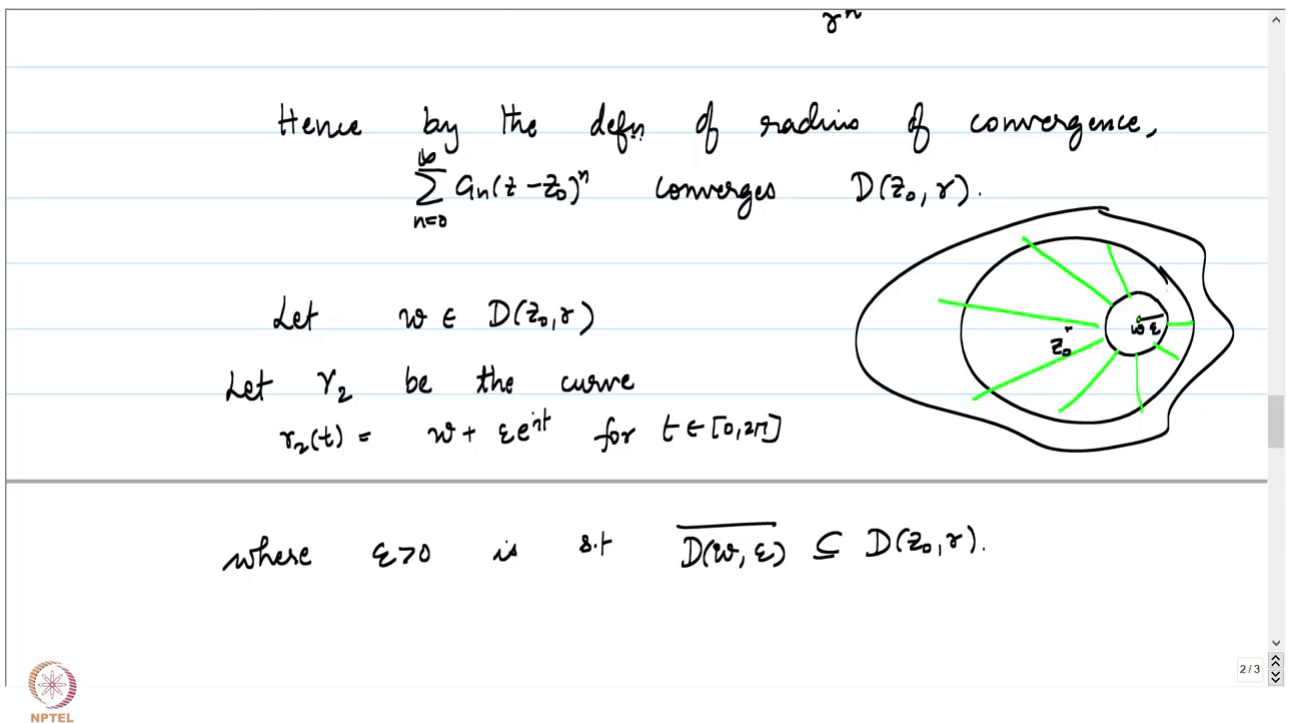 γⁿ
Hence by the defn of radius of convergence,
∞
∑ aₙ(z - z₀)ⁿ converges D(z₀, r).
n=0
Let w ∈ D(z₀, r)
z₀ w ε
Let γ₂ be the curve
γ₂(t) = w + εeⁱᵗ for t ∈ [0, 2π]
where ε>0 is s.t D(w, ε) ⊆ D(z₀, r).
2 / 3
NPTEL